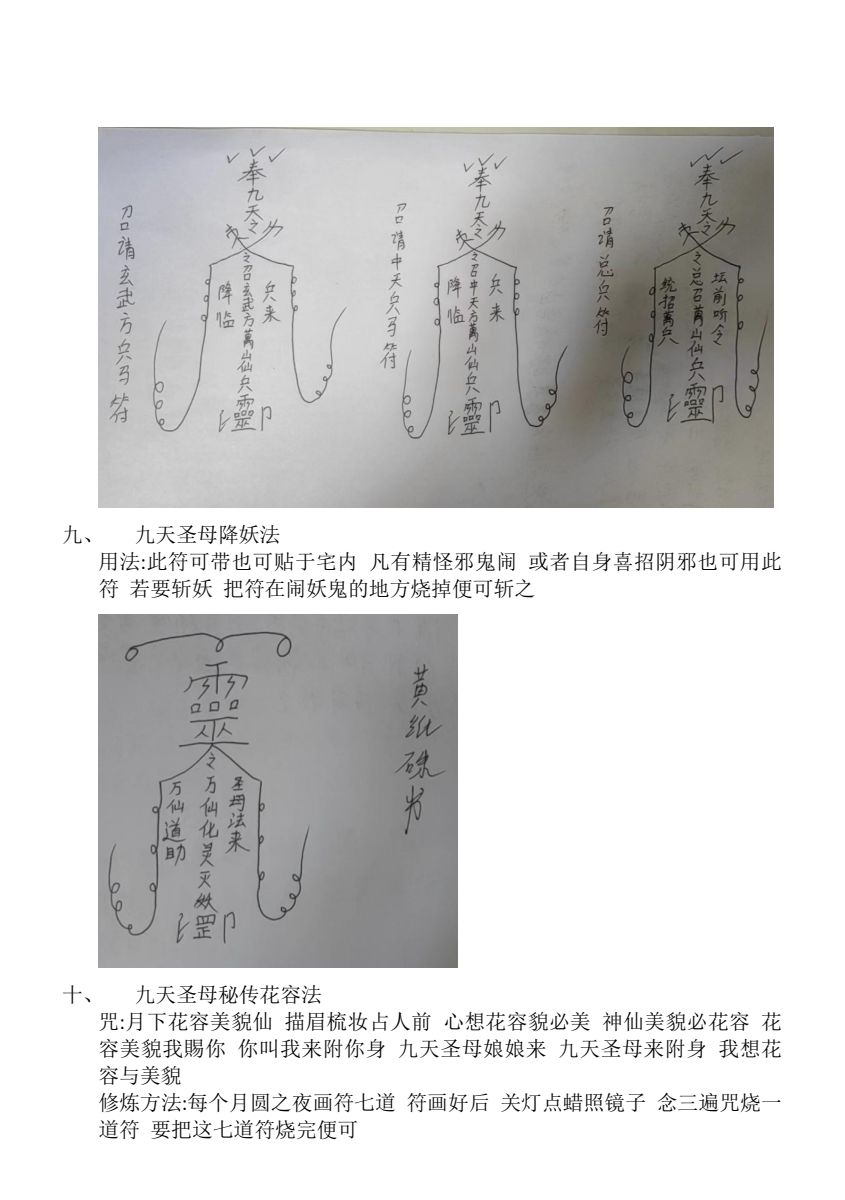 召请玄武方兵马符
奉九天之
之召玄武方萬山仙兵靈
兵来
降临
召请中天兵马符
奉九天之
之召中天方萬山仙兵靈
兵来
降临
召请总兵符
奉九天之
之总召萬山仙兵靈
坛前听令
统招萬兵
九、 九天圣母降妖法
用法:此符可带也可贴于宅内 凡有精怪邪鬼闹 或者自身喜招阴邪也可用此
符 若要斩妖 把符在闹妖鬼的地方烧掉便可斩之
靈
之万仙化灵灭妖罡
圣母法来
万仙道助
黄纸硃书
十、 九天圣母秘传花容法
咒:月下花容美貌仙 描眉梳妆占人前 心想花容貌必美 神仙美貌必花容 花
容美貌我赐你 你叫我来附你身 九天圣母娘娘来 九天圣母来附身 我想花
容与美貌
修炼方法:每个月圆之夜画符七道 符画好后 关灯点蜡照镜子 念三遍咒烧一
道符 要把这七道符烧完便可